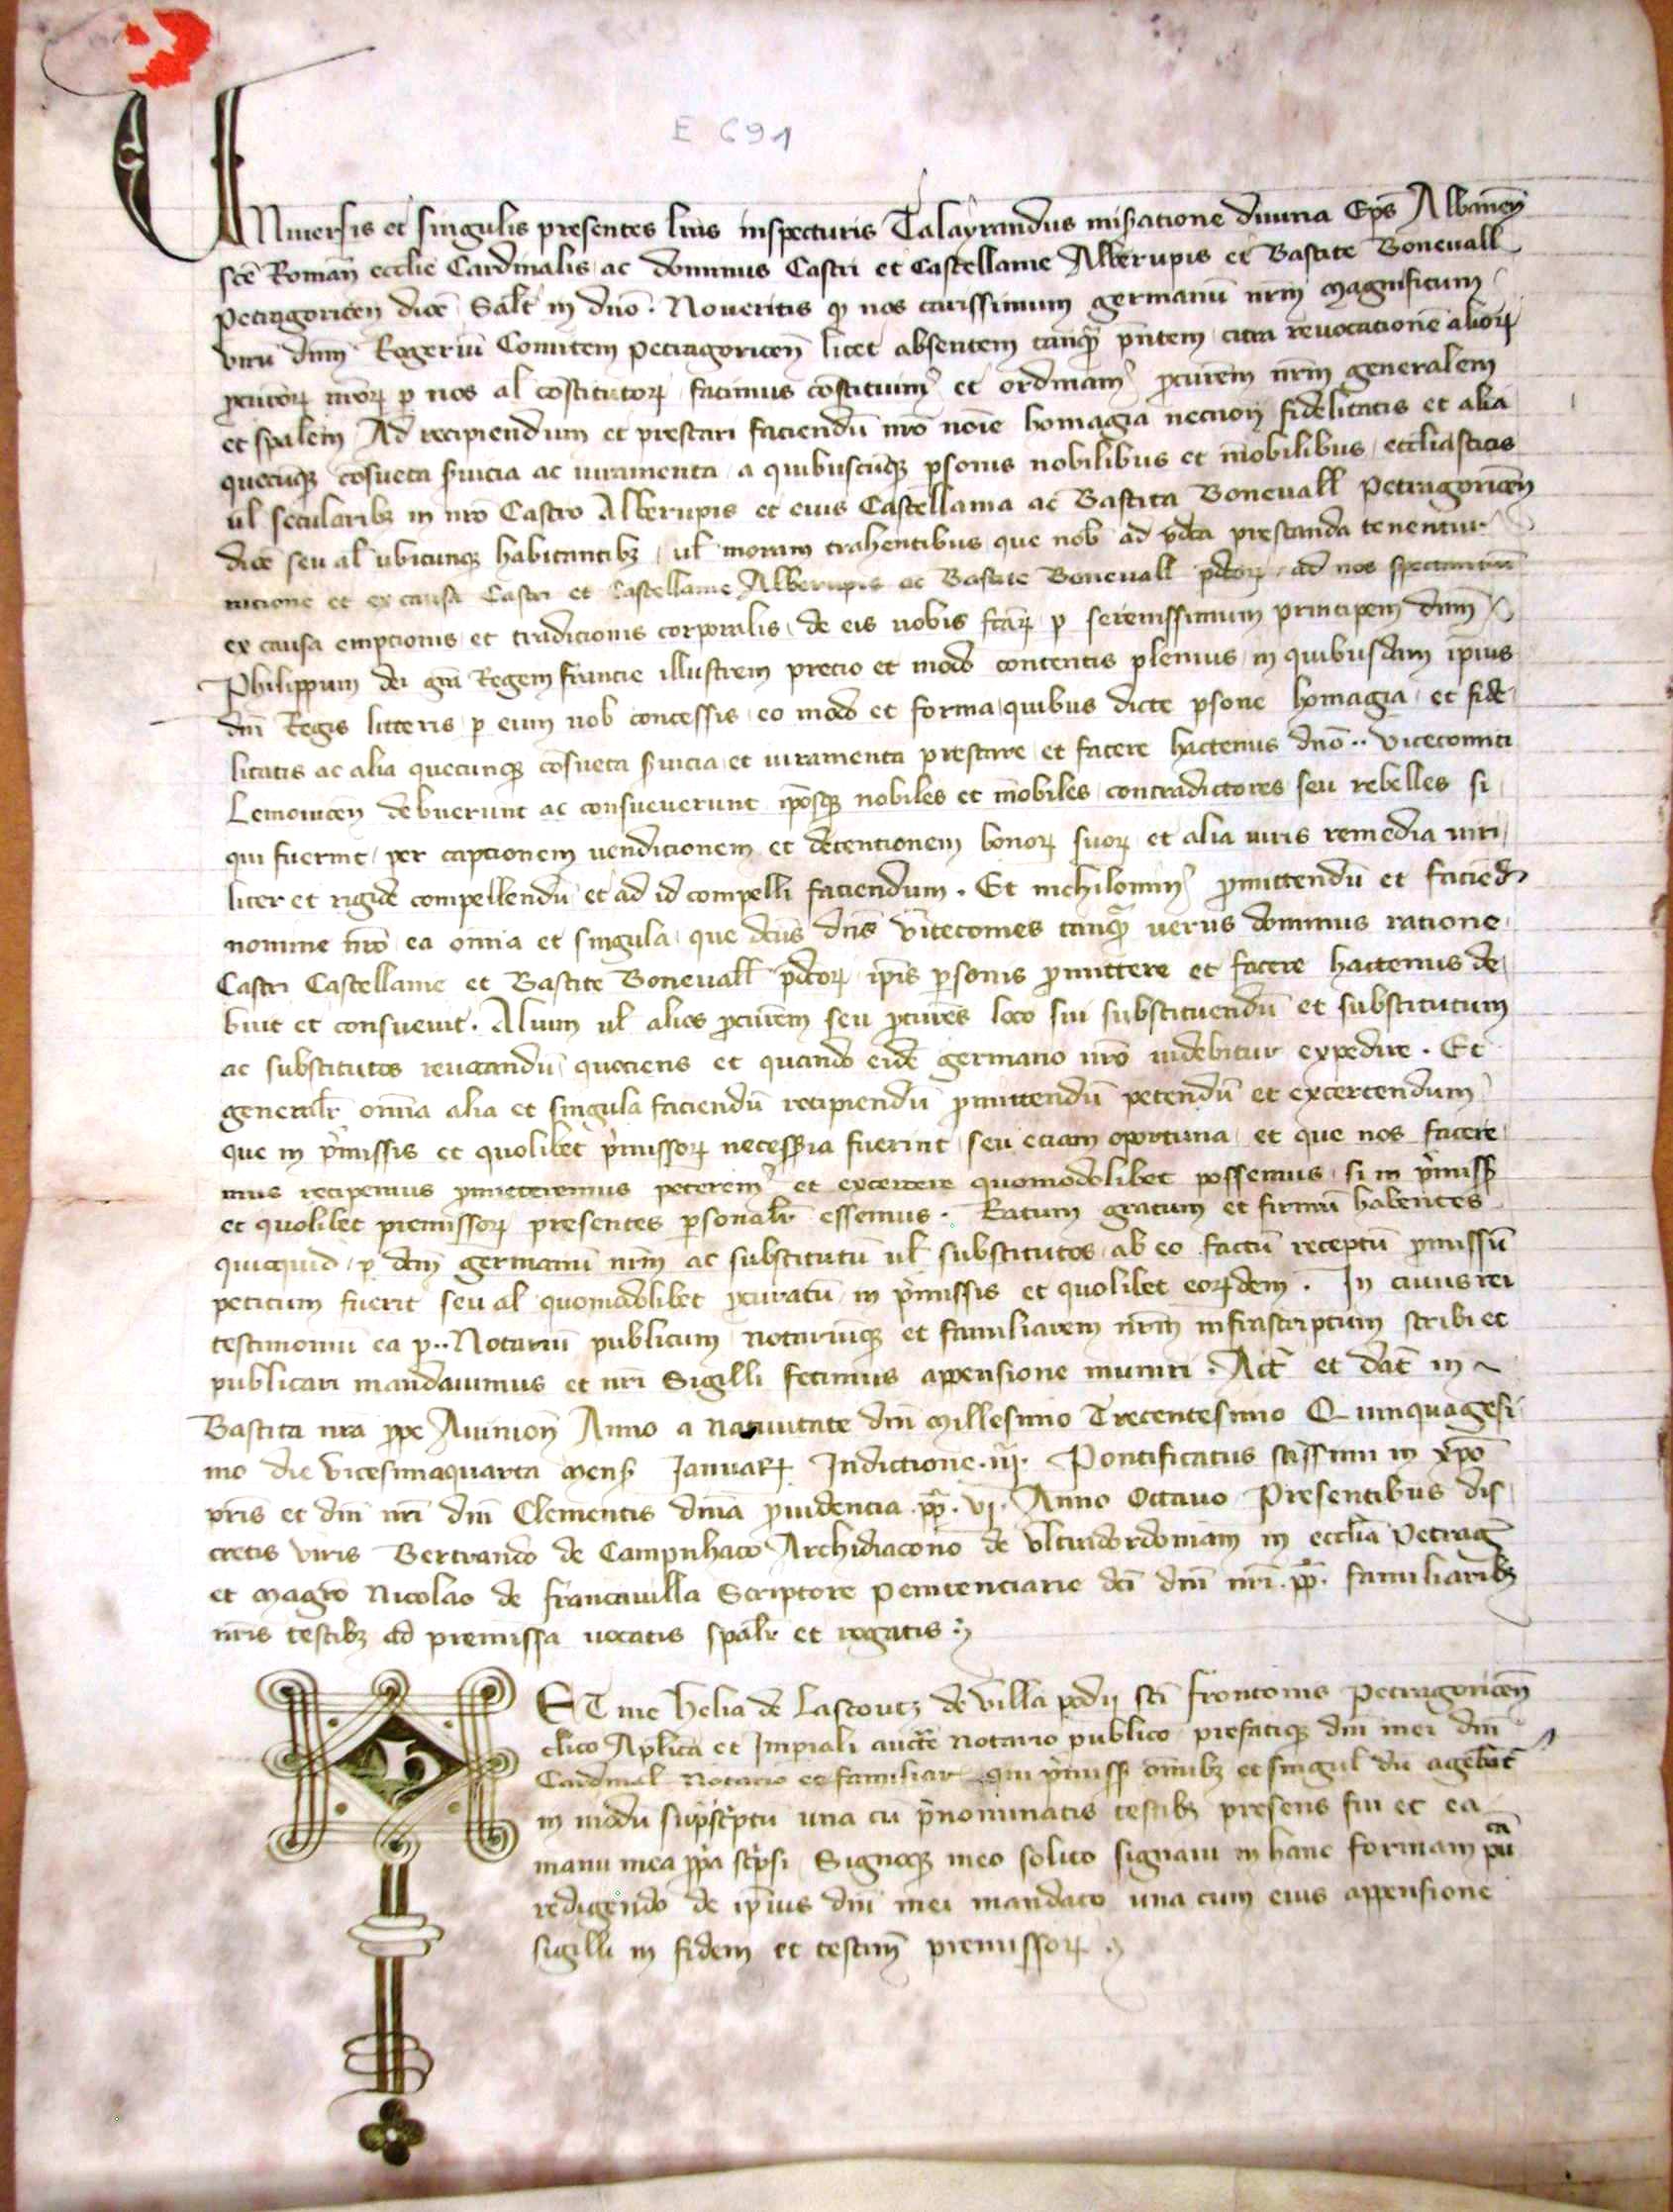 E 691
Universis et singulis presentes lras inspecturis Talayrandus misatione divina Eps Albanen
sce Roman ecclie Cardinalis ac dominus Castri et Castellanie Alberupis et Bastite Bonevall
Petragoricen dioc Salt in dno. Noveritis q nos carissimum germanu nrm magnificum
viru dnm Rogeriu Comitem Petragoricen licet absentem tanq pntem citra revocatione alior
pcutor nror p nos al constitutor facimus constituim et ordinam pcurem nrm generalem
et spalem Ad recipiendum et prestari faciendu nro noie homagia necnon fidelitatis et alia
quecuq cosueta svicia ac iuramenta a quibuscuq psonis nobilibus et inobilibus eccliasticis
ul secularib in nro Castro Alberupis et eius Castellania ac Bastita Bonevall Petragoricen
dioc seu al ubicunq habitantib ul moram trahentibus que nob ad pdca prestanda tenentur
racione et ex causa Castri et Castellanie Alberupis ac Bastite Bonevall pdcor ad nos spectantiu
ex causa emptionis et tradicionis corporalis de eis nobis fcar p serenissimum principem dnm
Philippum dei gra Regem francie illustrem precio et modo contentis plenius in quibusdam ipius
dni Regis litteris p eum nob concessis eo modo et forma quibus dicte psone homagia et fide
litatis ac alia quecunq cosueta svicia et iuramenta prestare et facere hactenus dno .. vicecomiti
Lemovicen debuerunt ac consueverunt iposq nobiles et inobiles contradictores seu rebelles si
qui fuerint per captionem venditionem et detentionem bonor suor et alia iuris remedia viri
liter et rigide compellendu et ad id compelli faciendum. Et nichilomin pmittendu et faciend
nomine nro ea omia et singula que dcus dns vicecomes tanq verus dominus ratione
Castri Castellanie et Bastite Bonevall pdcor ipis psonis pmittere et facere hactenus de
buit et consuevit. Alium ul alios pcurem seu pcures loco sui substituendu et substitutum
ac substitutos revocandu quociens et quando eide germano nro videbitur expedire. Et
generalr omia alia et singula faciendu recipiendu pmittendu petendu et excercendum
que in pmissis et quolibet pmissor necessria fuerint seu eciam oportuna et que nos facere
mus reciperemus pmitteremus peterem et excercere quomodolibet possemus si in pmiss
et quolibet premissor presentes psonalr essemus. Ratum gratum et firmu habentes
quicquid p dcm germanu nrm ac substitutu ul substitutos ab eo factu receptu pmissu
petitum fuerit seu al quomodolibet pcuratu in pmissis et quolibet eordem. In cuius rei
testimoniu ea p .. Notariu publicum notariuq et familiarem nrm infrascriptum scribi et
publicari mandavimus et nri Sigilli fecimus appensione muniri. Act et dat in
Bastita nra ppe Avinion Anno a nativitate dni Millesimo Trecentesimo Quinquagesi
mo die vicesimaquarta mens Januar Indictione .iij. Pontificatus scissimi in xpo
pris et dni nri dni Clementis divia pvidencia .pp. vj. Anno Octavo Presentibus dis
cretis viris Bertrando de Campnhaco Archidiacono de ultradordoniam in ecclia Petrag
et magro Nicolao de francavilla Scriptore penitenciarie dci dni nri .pp. familiarib
nris testib ad premissa vocatis spalr et rogatis
ET me helia de Lascoutz de villa podii sci frontonis Petragoricen
clico Aplica et Impiali aucte notario publico prefatiq dni mei dni
Cardinal notario et familiar qui pmiss omib et singul du agebat
in modu supsciptu una cu pnominatis testib presens fui et ea
manu mea ppa scpsi Signoq meo solito signavi in hanc formam pu
redigendo de ipius dni mei mandato una cum eius appensione
sigilli in fidem et testim premissor